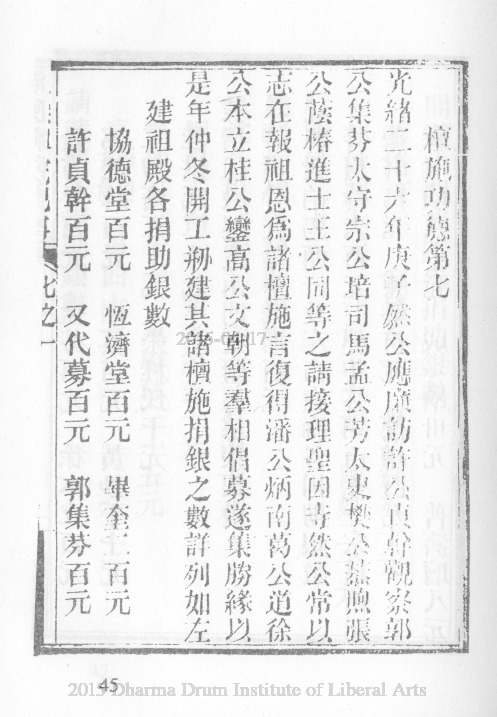 檀施功德第七
光緒二十六年庚子然公應廉訪許公貞幹觀察郭
公集芬太守宗公培司馬孟公芳太史樊公恭煦張
公蔭椿進士王公同等之請接理聖因寺然公常以
志在報祖恩爲諸檀施言復得潘公炳南葛公道徐
公本立桂公鑾高公文朝等羣相倡募遂集勝緣以
是年仲冬開工剏建其諸檀施捐銀之數詳列如左
建祖殿各捐助銀數
協德堂百元 恆濟堂百元 畢奎二百元
許貞幹百元 又代募百元 郭集芬百元
七之一
45
2015 Dharma Drum Institute of Liberal Arts